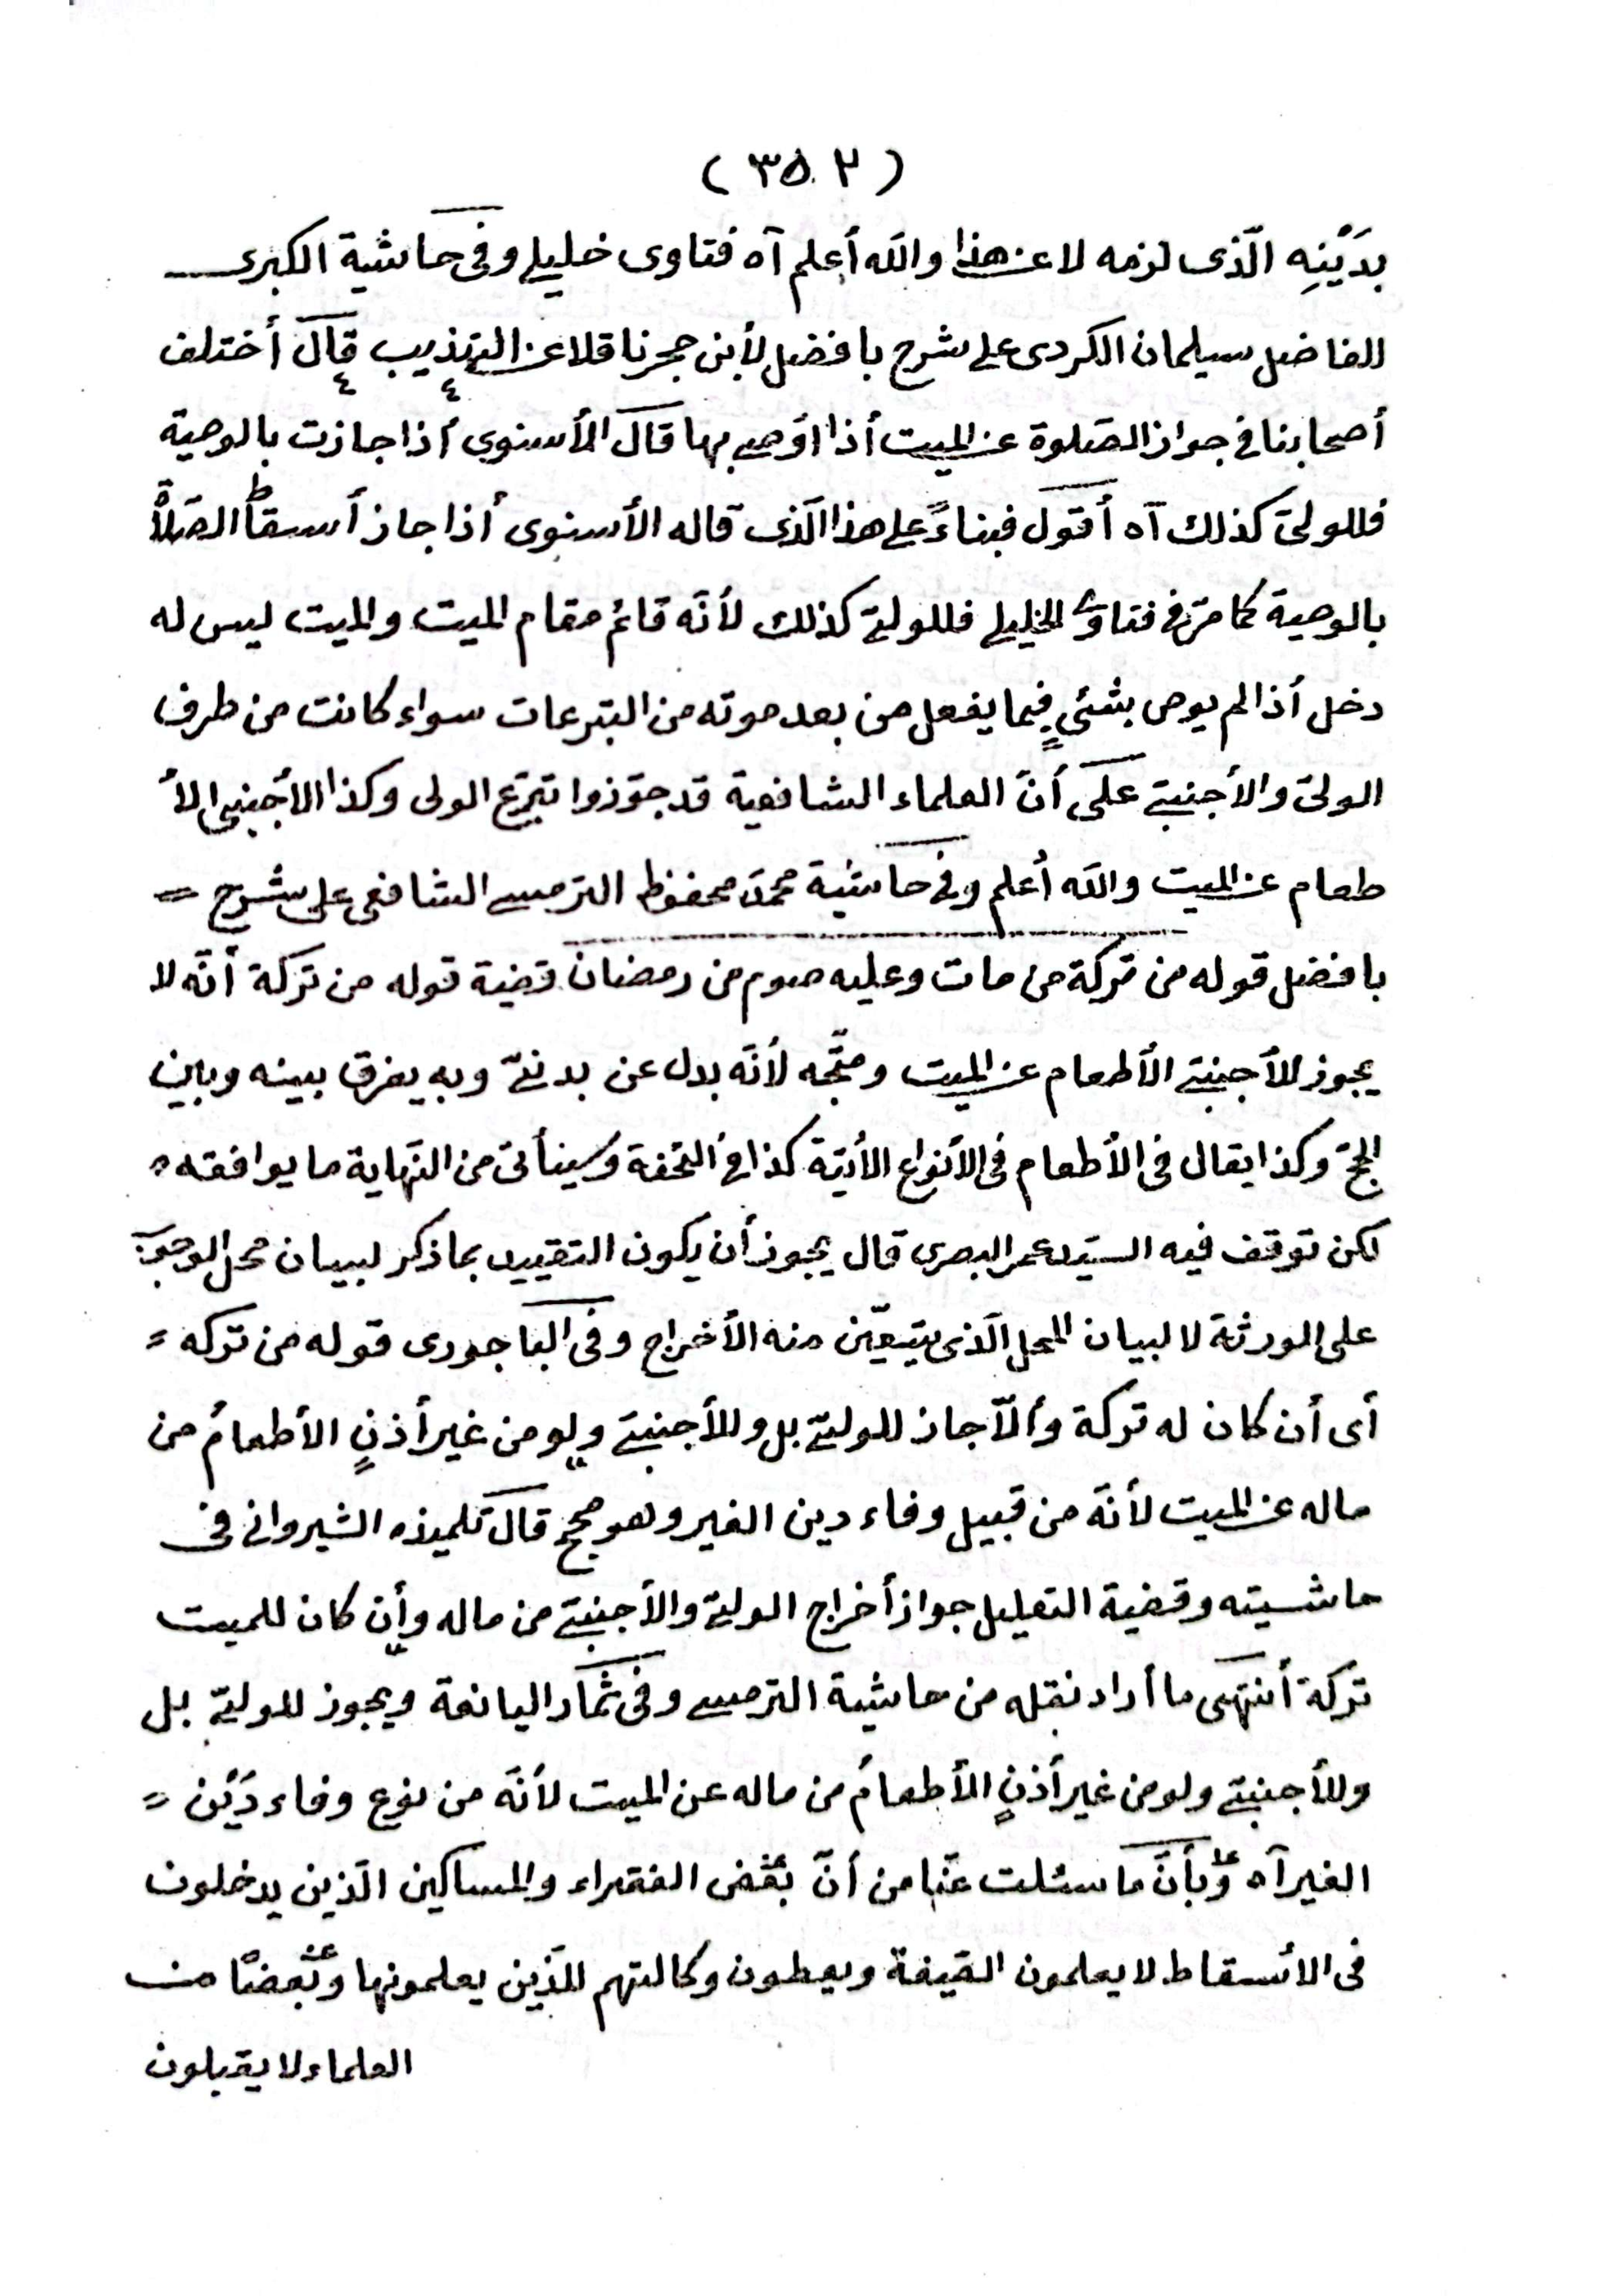 (٣٥٢)
بدَيْنِهِ الّذى لزمه لا عن هذا والله أعلم آه فتاوى خليلى وفى حاشية الكبرى
الفاضل سيلمان الكردى على شرح بافضل لأبن حجر ناقلا عن التهذيب قال أختلف
أصحابنا فى جواز الصّلوة عن الميت أذا اوصى بها قال الأسنوى أذا جازت بالوصية
فللولىّ كذلك آه أقول فبناءً على هذا الّذى قاله الأسنوى أذا جاز أسقاط الصّلاة
بالوصية كما مرّ فى فتاوى الخليلى فللولىّ كذلك لأنّه قائم مقام الميت والميت ليس له
دخل أذا لم يوص بشئىٍ فيما يفعل من بعد موته من التبرعات سواء كانت من طرف
الولىّ والأجنبىّ على أنّ العلماء الشافعية قد جوّزوا تبرّع الولى وكذا الأجنبى الأ
طعام عن الميت والله أعلم وفى حاشية محمّد محفوظ الترمسى الشافعى على شرح =
بافضل قوله من تركة من مات وعليه صوم من رمضان قضية قوله من تركة أنّه لا
يجوز للأجنبىّ الأطعام عن الميت ومتّجه لأنّه بدل عن بدنىّ وبه يفرق بينه وبين
الحجّ وكذا يقال فى الأطعام فى الأنواع الأتيّة كذا فى التحفة وسيأتى من النّهاية ما يوافقه ه
لكن توقف فيه السيّد عمر البصرى قال يجوز أن يكون التقييد بما ذكر لبيان محل الوجوب
على الورثة لا لبيان المحل الّذى يتعيّن منه الأخراج وفى الباجورى قوله من تركه =
أى أن كان له تركة وألّا جاز للولىّ بل وللأجنبىّ ولو من غير أذنٍ الأطعامُ من
ماله عن الميت لأنّه من قبيل وفاء دين الغير وهو صحيح قال تلميذه الشيروانى فى
حاشيته وقضية التعليل جواز أخراج الولىّ والأجنبىّ من ماله وأن كان للميت
تركة أنتهى ما أراد نقله من حاشية الترمسى وفى ثمار اليانعة ويجوز للولىّ بل
وللأجنبىّ ولو من غير أذنٍ الأطعامُ من ماله عن الميت لأنّه من نوع وفاء دَيْن =
الغير آه وبأنّ ما سئلت عنّا من أنّ بعض الفقراء والمساكين الّذين يدخلون
فى الأسقاط لا يعلمون الصّيغة ويعطون وكالتهم للّذين يعلمونها وبعضًا من
العلماء لا يقبلون